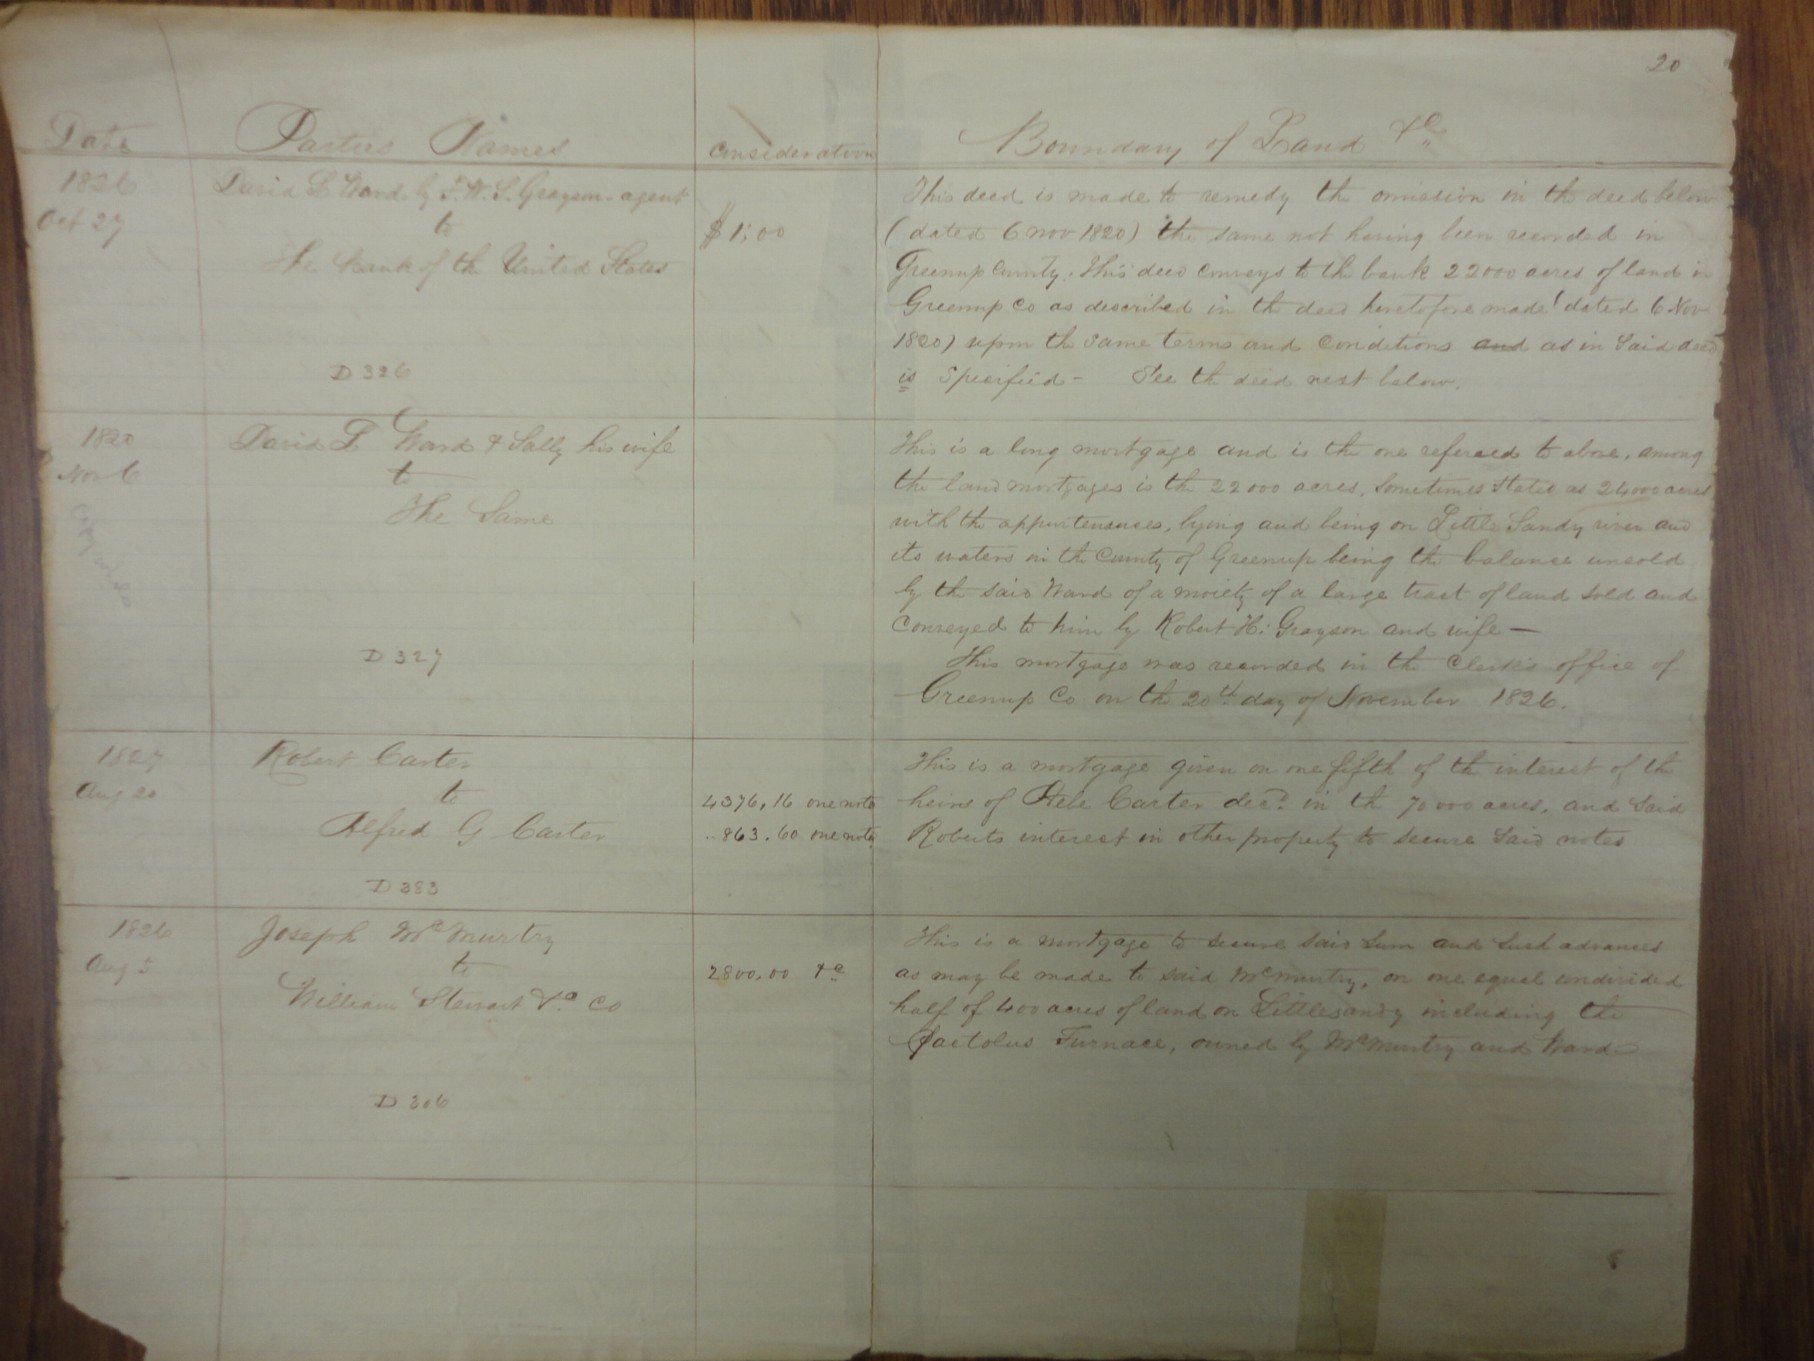 20
Date Parties Names Consideration Boundary of Land &c
1826
Oct 27
David L Ward by F. W. S. Grayson - agent
to
The bank of the United States
D 326
$1,00
This deed is made to remedy the omission in th deed below
(dated 6 Nov 1820) the same not having been recorded in
Greenup County. This deed conveys to th bank 22000 acres of land in
Greenup Co as described in th deed heretofore made (dated 6 Nov
1820) upon th same terms and conditions and as in said deed
is specified - See th deed next below.
1820
Nov 6
David L Ward & Sally his wife
to
The Same
D 327
This is a long mortgage and is the one refered to above, among
the land mortgages is th 22000 acres, sometimes stated as 24000 acres
with th appurtenances, lying and being on Little Sandy river and
its waters in th County of Greenup being the balance unsold
by th said Ward of a moiety of a large tract of land sold and
conveyed to him by Robert H. Grayson and wife —
This mortgage was recorded in the Clerks office of
Greenup Co on th 20th day of November 1826.
1827
Aug 20
Robert Carter
to
Alfred G Carter
D 383
4376,16 one note
863.60 one note
This is a mortgage given on one fifth of th interest of th
heirs of Hebe Carter decd. in th 70000 acres, and said
Roberts interest in other property to secure said notes
1826
Aug 5
Joseph McMurtry
to
William Stewart &c Co
D 306
2800,00 &c
This is a mortgage to secure said sum and such advances
as may be made to said McMurtry, on one equal undivided
half of 400 acres of land on Littlesandy including the
Pactolus Furnace, owned by McMurtry and Ward